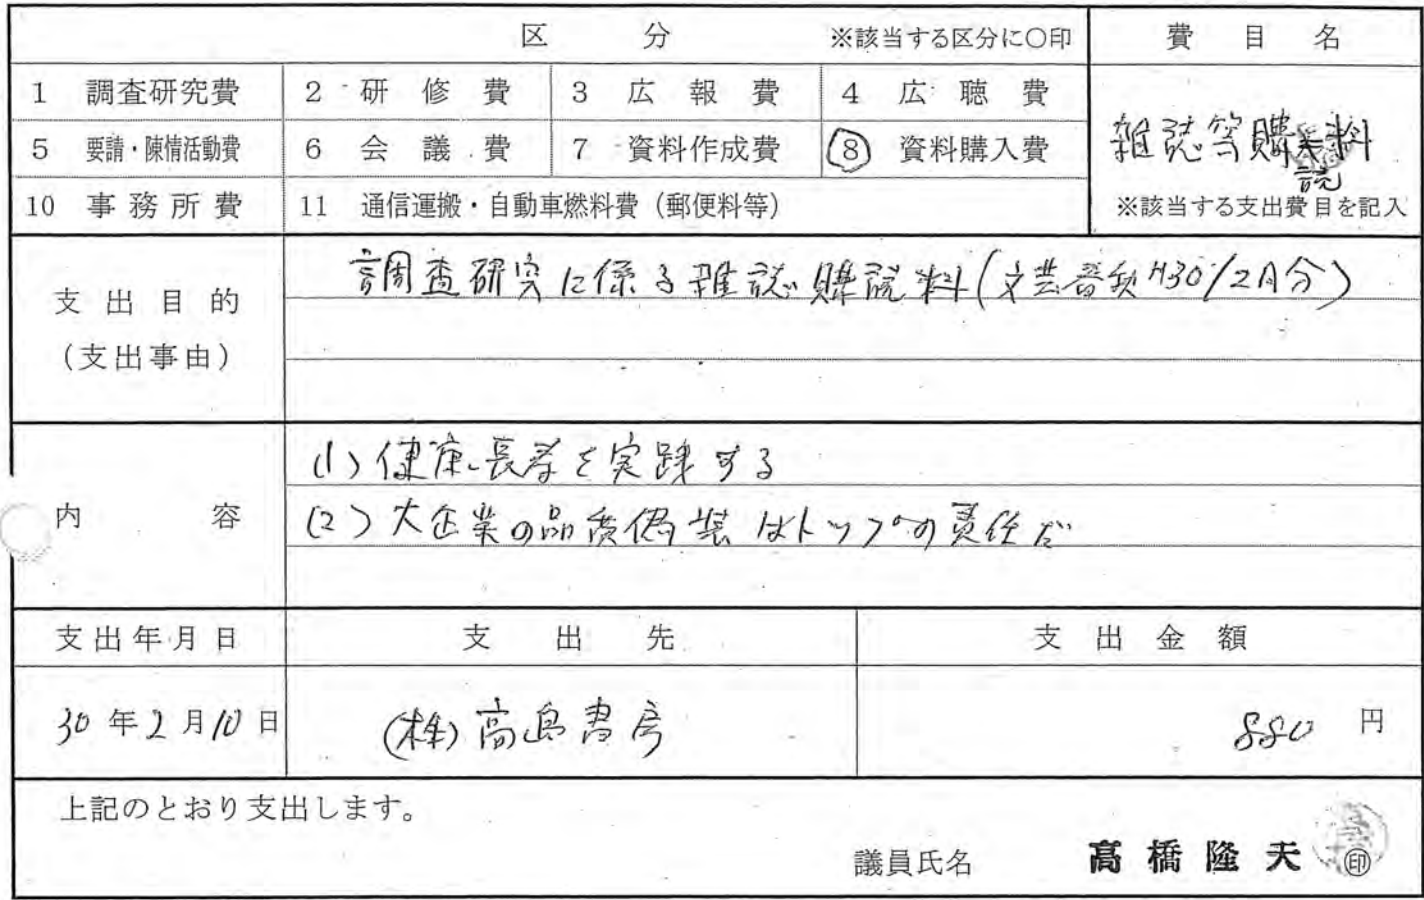 区 分 ※該当する区分に○印
費 目 名
1 調査研究費 2 研 修 費 3 広 報 費 4 広 聴 費
5 要請・陳情活動費 6 会 議 費 7 資料作成費 ⑧ 資料購入費
雑誌等購読料
10 事務所費 11 通信運搬・自動車燃料費（郵便料等）
※該当する支出費目を記入
支出目的
（支出事由）
調査研究に係る雑誌購読料(文芸春秋H30/2月分)
内 容
(1)健康長寿を実践する
(2)大企業の品質偽装はトップの責任だ
支出年月日 支 出 先 支 出 金 額
30年2月10日 (株)高島書房 880円
上記のとおり支出します。
議員氏名 高橋隆夫 ㊞